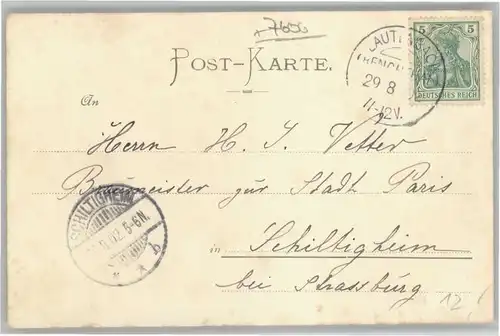 +7656
POST-KARTE.
LAUTENBACH
(RENCH
29 8
11-12V.
5 5
DEUTSCHES REICH
An
Herrn H. J. Vetter
Braumeister zur Stadt Paris
SCHILTIGHEIM
02. 5-6N.
in Schiltigheim
bei Strassburg
12,